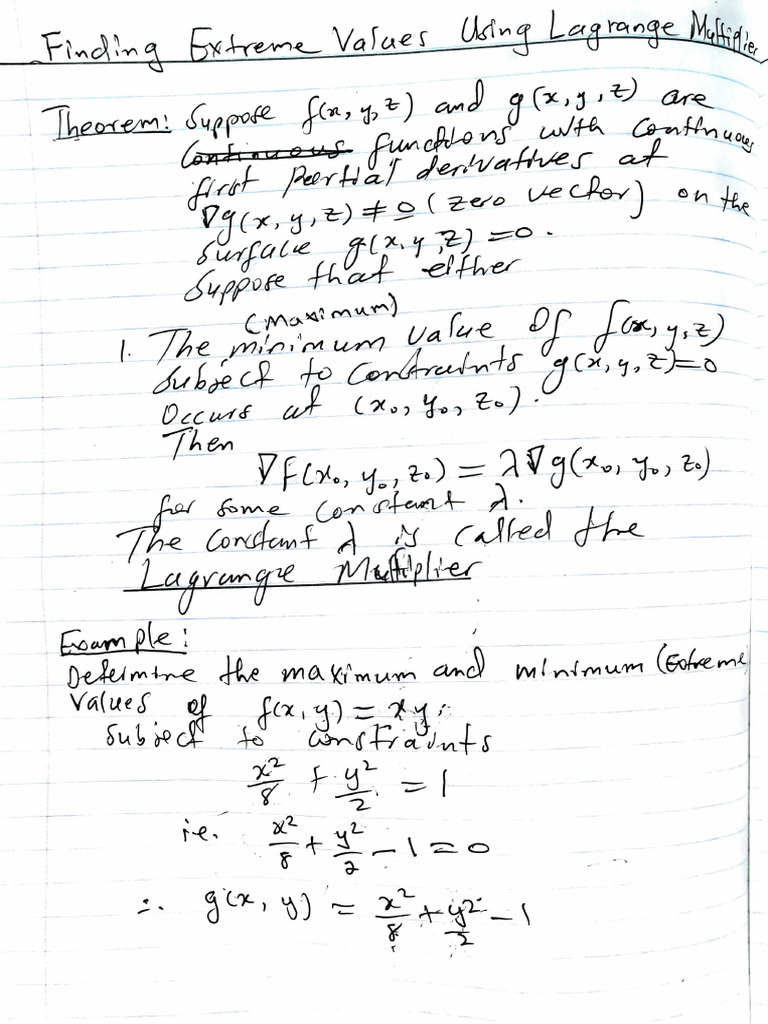 Finding Extreme Values Using Lagrange Multiplier
Theorem: Suppose f(x, y, z) and g(x, y, z) are
Continuous functions with continuous
first partial derivatives at
∇g(x, y, z) ≠ 0 (zero vector) on the
surface g(x, y, z) = 0.
Suppose that either
(Maximum)
1. The minimum value of f(x, y, z)
subject to constraints g(x, y, z) = 0
occurs at (x₀, y₀, z₀).
Then
∇f(x₀, y₀, z₀) = λ∇g(x₀, y₀, z₀)
for some constant λ.
The constant λ is called the
Lagrange Multiplier
Example:
Determine the maximum and minimum (Extreme
values of f(x, y) = xy.
subject to constraints
x²/8 + y²/2 = 1
i.e. x²/8 + y²/2 - 1 = 0
∴ g(x, y) = x²/8 + y²/2 - 1